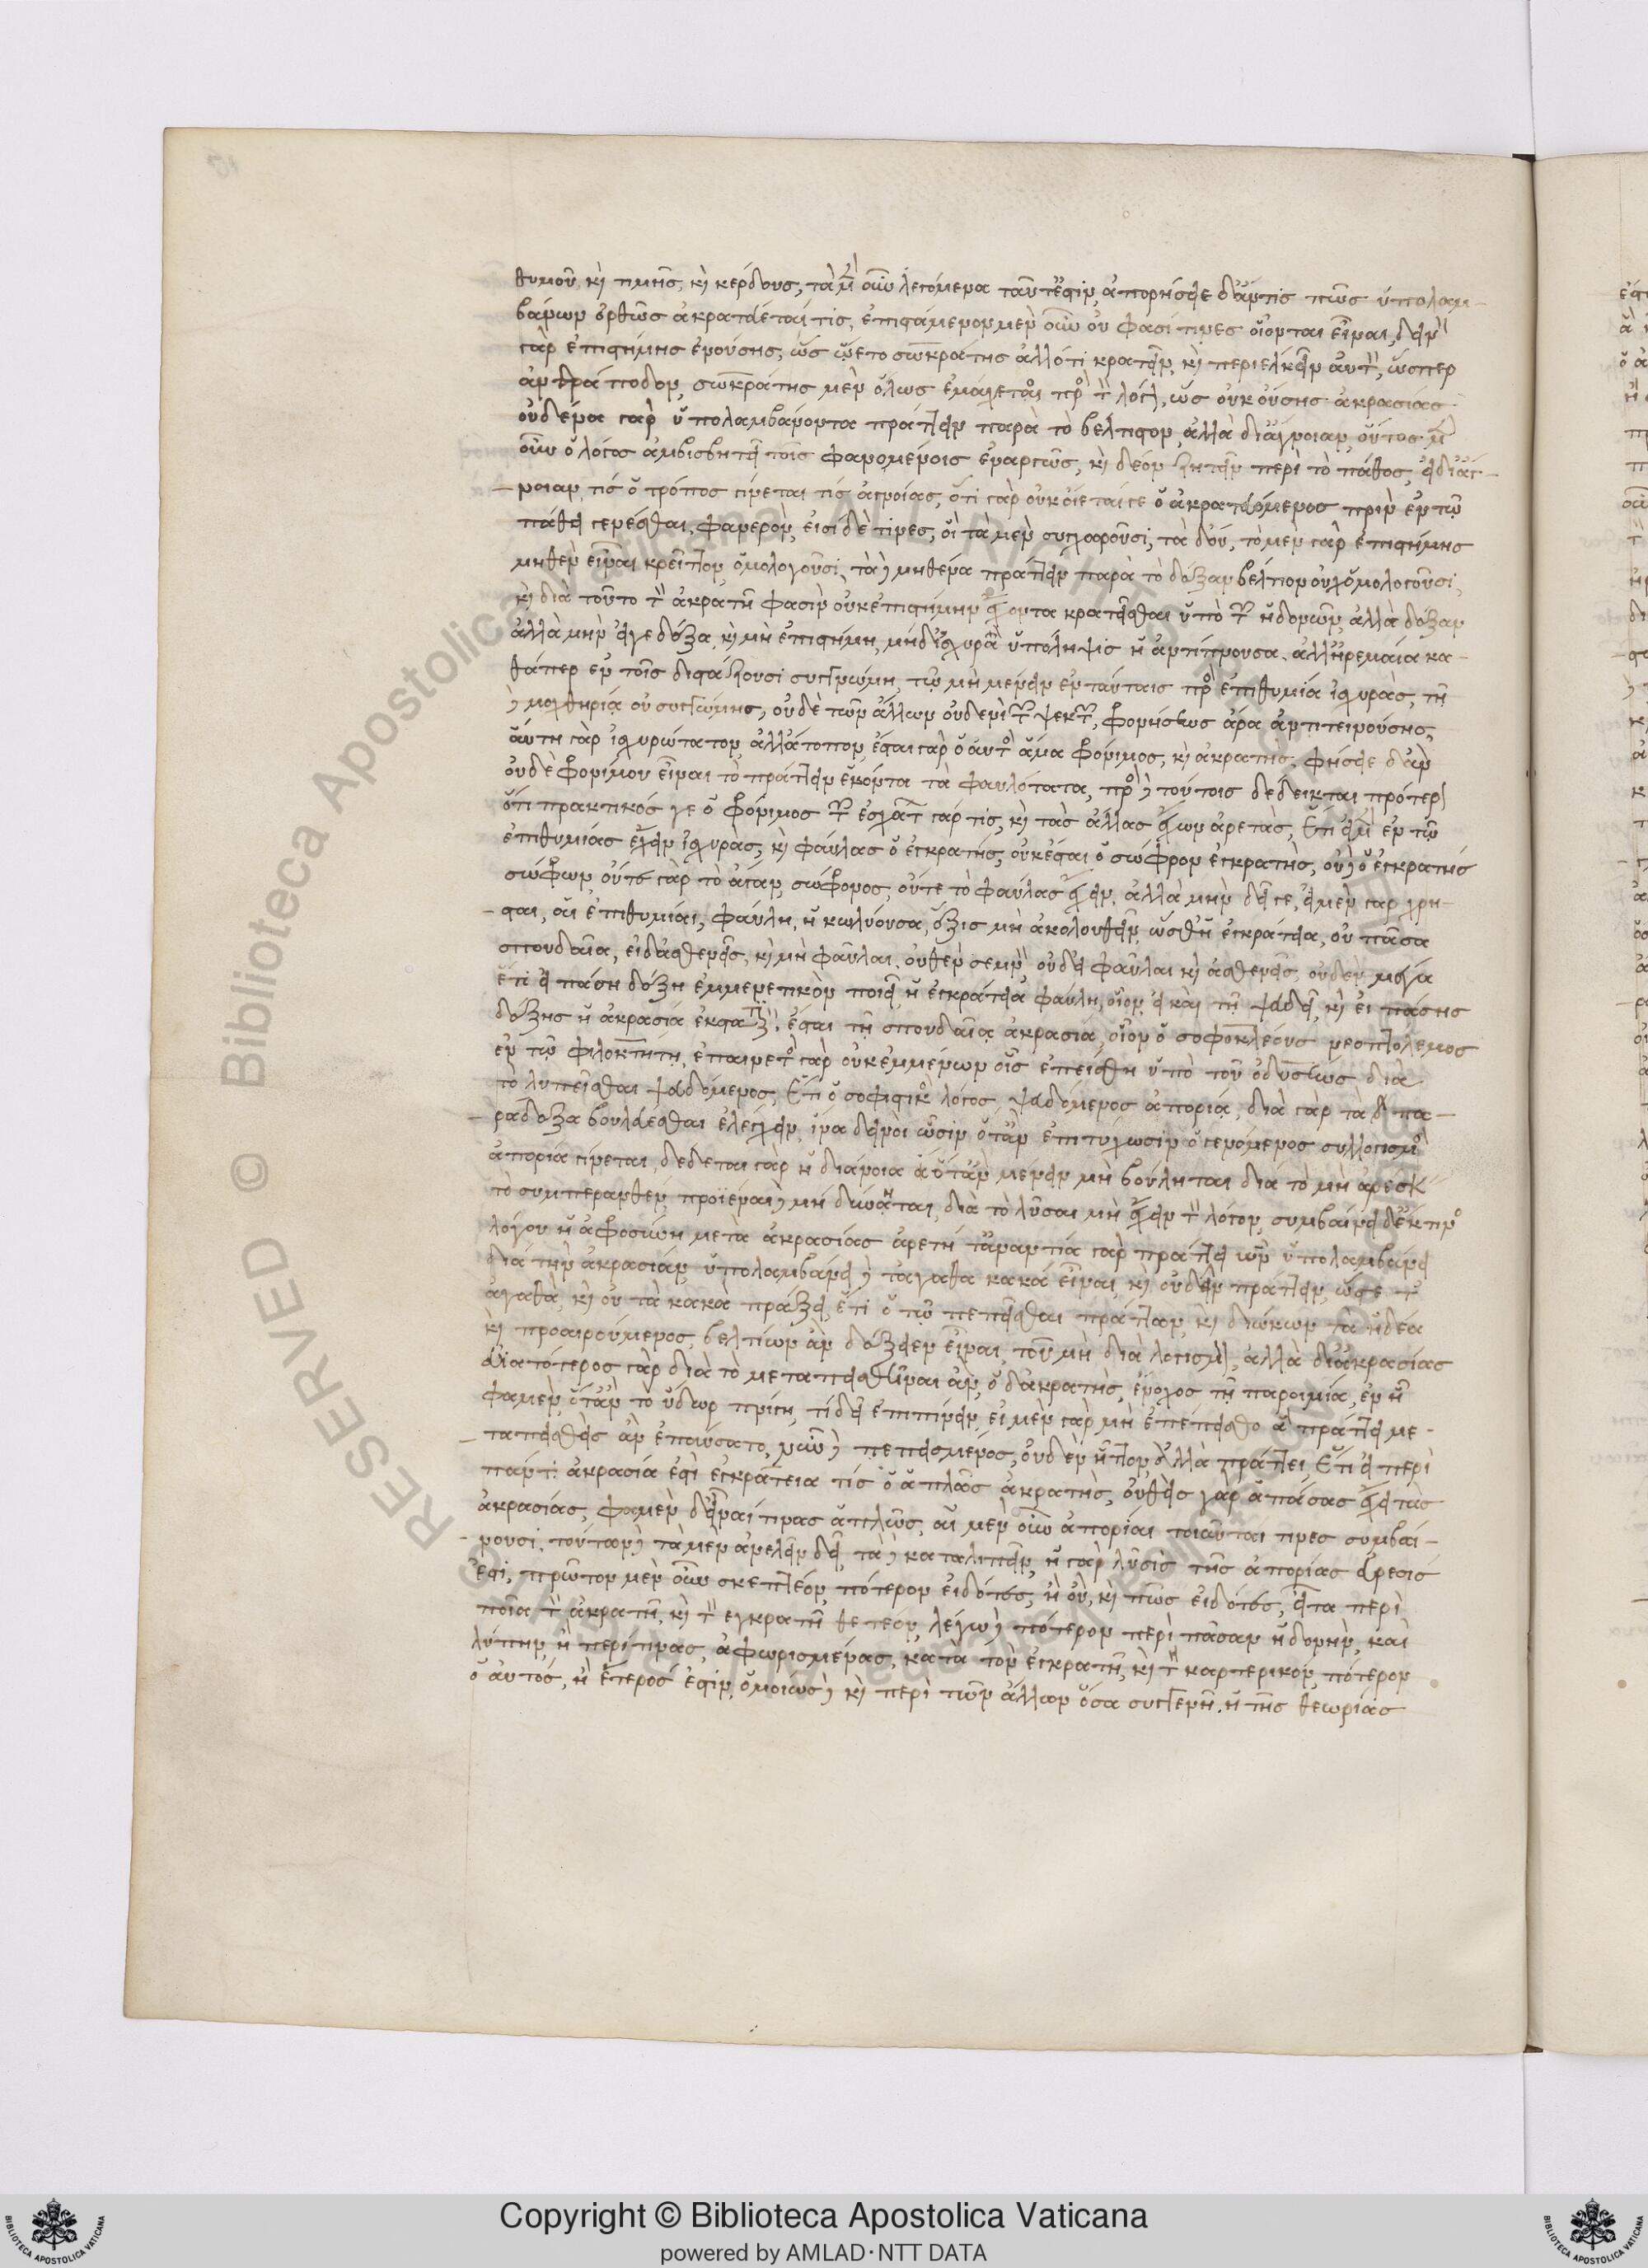 θυμοῦ, κὶ τιμῆς, κὶ κέρδους, τὰ μὲν οὖν λεγόμενα ταῦτ' ἐστίν, ἀπορήσειε δ' ἄν τις πῶς ὑπολαμ-
βάνων ὀρθῶς ἀκρατεύεταί τις, ἐπιστάμενον μὲν οὖν οὔ φασί τινες οἷόν τε εἶναι, δεινὸν
γὰρ ἐπιστήμης ἐνούσης, ὡς ᾤετο σωκράτης ἄλλό τι κρατεῖν, κὶ περιέλκειν αὐτὸν, ὥσπερ
ἀνδράποδον, σωκράτης μὲν ὅλως ἐμάχετο πρὸς τὸν λόγον, ὡς οὐκ οὔσης ἀκρασίας
οὐδένα γὰρ ὑπολαμβάνοντα πράττειν παρὰ τὸ βέλτιστον, ἀλλὰ δι' ἄγνοιαν, οὗτος μὲν
οὖν ὁ λόγος ἀμφισβητεῖ τοῖς φαινομένοις ἐναργῶς, κὶ δέον ζητεῖν περὶ τὸ πάθος, εἰ δι' ἄγ-
νοιαν, τίς ὁ τρόπος γίνεται τῆς ἀγνοίας, ὅτι γὰρ οὐκ οἴεταί γε ὁ ἀκρατευόμενος πρὶν ἐν τῷ
πάθει γενέσθαι, φανερὸν, εἰσὶ δέ τινες, οἳ τὰ μὲν συγχωροῦσι, τὰ δ' οὔ, τὸ μὲν γὰρ ἐπιστήμης
μηθὲν εἶναι κρεῖττον, ὁμολογοῦσι, τὸ δὲ μηθένα πράττειν παρὰ τὸ δόξαν βέλτιον οὐχ ὁμολογοῦσι,
κὶ διὰ τοῦτο τὸν ἀκρατῆ φασὶν οὐκ ἐπιστήμην ἔχοντα κρατεῖσθαι ὑπὸ τῶν ἡδονῶν, ἀλλὰ δόξαν
ἀλλὰ μὴν εἴγε δόξα, κὶ μὴ ἐπιστήμη, μηδ' ἰσχυρὰ ὑπόληψις ἡ ἀντιτείνουσα, ἀλλ' ἠρεμαία κα-
θάπερ ἐν τοῖς διστάζουσι συγγνώμη, τῷ μὴ μένειν ἐν ταύταις πρὸς ἐπιθυμίας ἰσχυρὰς, τῇ
δὲ μοχθηρίᾳ οὐ συγγνώμης, οὐδὲ τῶν ἄλλων οὐδενὶ τῶν ψεκτῶν, φρονήσεως ἄρα ἀντιτεινούσης,
αὕτη γὰρ ἰσχυρώτατον, ἀλλ' ἄτοπον, ἔσται γὰρ ὁ αὐτὸς ἅμα φρόνιμος, κὶ ἀκρατής, φήσειε δ' ἂν
οὐδὲ φρονίμου εἶναι τὸ πράττειν ἑκόντα τὰ φαυλότατα, πρὸς δὲ τούτοις δέδεικται πρότερον
ὅτι πρακτικός γε ὁ φρόνιμος τῶν ἐσχάτων γάρ τις, κὶ τὰς ἄλλας ἔχων ἀρετὰς, ἔτι εἰ μὲν ἐν τῷ
ἐπιθυμίας ἔχειν ἰσχυρὰς, κὶ φαύλας ὁ ἐγκρατής, οὐκ ἔσται ὁ σώφρων ἐγκρατὴς, οὐδὲ ὁ ἐγκρατὴς
σώφρων, οὔτε γὰρ τὸ ἄγαν, σώφρονος, οὔτε τὸ φαύλας ἔχειν, ἀλλὰ μὴν δεῖ γε, εἰ μὲν γὰρ χρη-
σταὶ, αἱ ἐπιθυμίαι, φαύλη, ἡ κωλύουσα, ἕξις μὴ ἀκολουθεῖν, ὥσθ' ἡ ἐγκράτεια, οὐ πᾶσα
σπουδαία, εἰ δ' ἀσθενεῖς, κὶ μὴ φαῦλαι, οὐθὲν σεμνὸν, οὐδ' εἰ φαῦλαι κὶ ἀσθενεῖς, οὐδὲν μέγα
ἔτι εἰ πάσῃ δόξῃ ἐμμενετικὸν ποιεῖ ἡ ἐγκράτεια φαύλη, οἷον, εἰ καὶ τῇ ψευδεῖ, κὶ εἰ πάσης
δόξης ἡ ἀκρασία ἐκστατικὸν, ἔσται τὶς σπουδαία ἀκρασία, οἷον ὁ σοφοκλέους νεοπτόλεμος
ἐν τῷ φιλοκτήτῃ, ἐπαινετὸς γὰρ οὐκ ἐμμένων οἷς ἐπείσθη ὑπὸ τοῦ ὀδυσσέως διὰ
τὸ λυπεῖσθαι ψευδόμενος, ἔτι ὁ σοφιστικὸς λόγος, ψευδόμενος ἀπορία, διὰ γὰρ τὸ πα-
ράδοξα βούλεσθαι ἐλέγχειν, ἵνα δεινοὶ ὦσιν ὅταν ἐπιτύχωσιν ὁ γενόμενος συλλογισμὸς
ἀπορία γίνεται, δέδεται γὰρ ἡ διάνοια ὅταν μένειν μὴ βούληται διὰ τὸ μὴ ἀρέσκειν
τὸ συμπερανθὲν, προϊέναι δὲ μὴ δύνηται, διὰ τὸ λῦσαι μὴ ἔχειν τὸν λόγον, συμβαίνει δὲ ἔκ τινος
λόγου ἡ ἀφροσύνη μετὰ ἀκρασίας ἀρετή τἀναντία γὰρ πράττει ὧν ὑπολαμβάνει
διὰ τὴν ἀκρασίαν, ὑπολαμβάνει δὲ τἀγαθὰ κακὰ εἶναι, κὶ οὐ δεῖν πράττειν, ὥστε τὰ
ἀγαθὰ, κὶ οὐ τὰ κακὰ πράξει, ἔτι ὁ τῷ πεπεῖσθαι πράττων, κὶ διώκων τὰ ἡδέα
κὶ προαιρούμενος, βελτίων ἂν δόξειεν εἶναι, τοῦ μὴ διὰ λογισμὸν, ἀλλὰ δι' ἀκρασίας
εὐιατότερος γὰρ διὰ τὸ μεταπεισθῆναι ἄν, ὁ δ' ἀκρατὴς, ἔνοχος τῇ παροιμίᾳ, ἐν ᾗ
φαμὲν, ὅταν τὸ ὕδωρ πνίγῃ, τί δεῖ ἐπιπίνειν, εἰ μὲν γὰρ μὴ ἐπέπειστο ἃ πράττει με-
ταπεισθεὶς ἂν ἐπαύσατο, νῦν δὲ πεπεισμένος, οὐδὲν ἧττον ἄλλα πράττει, ἔτι εἰ περὶ
πάντα ἀκρασία ἐστὶ ἐγκράτεια τίς ὁ ἁπλῶς ἀκρατὴς, οὐθεὶς γὰρ ἁπάσας ἔχει τὰς
ἀκρασίας, φαμὲν δ' εἶναί τινας ἁπλῶς, αἱ μὲν οὖν ἀπορίαι τοιαῦταί τινες συμβαί-
νουσι, τούτων δὲ τὰ μὲν ἀνελεῖν δεῖ, τὰ δὲ καταλιπεῖν, ἡ γὰρ λύσις τῆς ἀπορίας εὕρεσίς
ἐστι, πρῶτον μὲν οὖν σκεπτέον, πότερον εἰδότες, ἢ οὔ, κὶ πῶς εἰδότες, εἶτα περὶ
ποῖα τὸν ἀκρατῆ, κὶ τὸν ἐγκρατῆ θετέον, λέγω δὲ πότερον περὶ πᾶσαν ἡδονὴν, καὶ
λύπην, ἢ περί τινας, ἀφωρισμένας, κατὰ τὸν ἐγκρατῆ, κὶ τὸν καρτερικόν, πότερον
ὁ αὐτὸς, ἢ ἕτερός ἐστιν, ὁμοίως δὲ κὶ περὶ τῶν ἄλλων ὅσα συγγενῆ ἡ τῆς θεωρίας
Copyright © Biblioteca Apostolica Vaticana
powered by AMLAD·NTT DATA